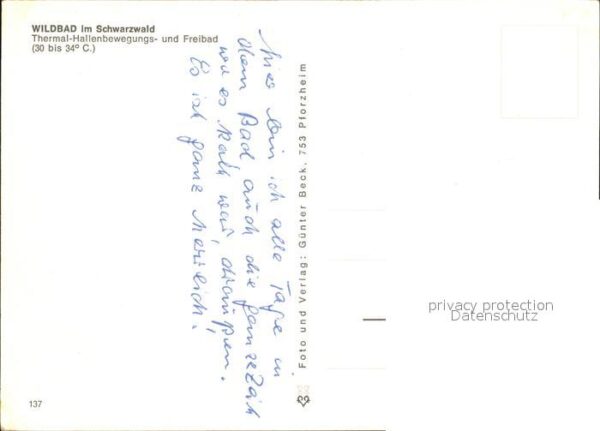 WILDBAD im Schwarzwald
Thermal-Hallenbewegungs- und Freibad
(30 bis 34º C.)
Hier bin ich alle Tage in
dem Bad, auch die ganze Zeit
wo es kalt war, draußen.
Es ist ganz herrlich.
Foto und Verlag: Günter Beck, 753 Pforzheim
privacy protection
Datenschutz
137